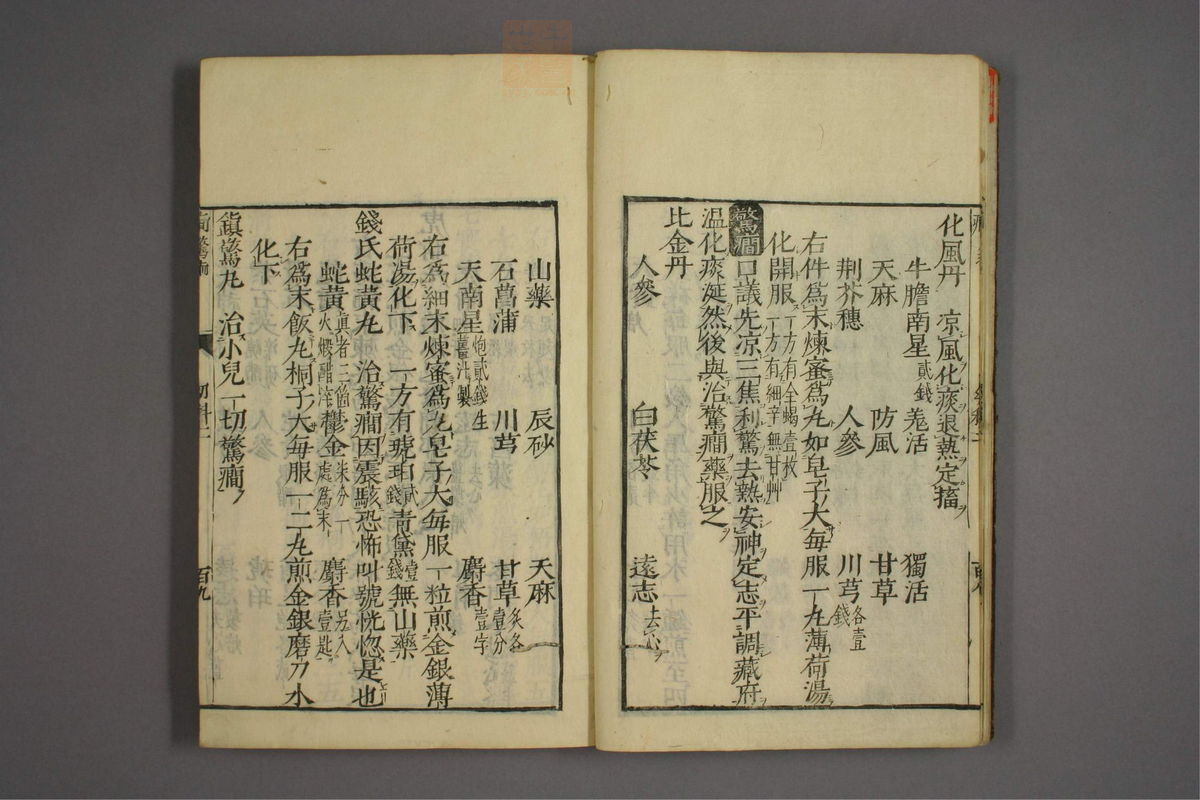 化風丹 凉風化痰退熱定搐
牛膽南星貳錢 羌活 獨活
天麻 防風 甘草
荊芥穗 人參 川芎各壹錢
右件爲末煉蜜爲丸如皂子大每服一丸薄荷湯
化開服一方有全蝎壹枚一方有細辛無甘艸
驚癇口議先凉三焦利驚去熱安神定志平調藏府
温化痰涎然後與治驚癇藥服之
比金丹
人參 白茯苓 遠志去心
山藥 辰砂 天麻
石菖蒲 川芎 甘草炙各壹分
天南星炮貳錢生薑汁製 麝香壹字
右爲細末煉蜜爲丸皂子大每服一粒煎金銀薄
荷湯化下一方有琥珀貳錢青黛壹錢無山藥
錢氏蛇黃丸 治驚癇因震駭恐怖叫號恍惚是也
蛇黃眞者三箇火煅醋淬 鬱金柒分一處爲末 麝香另入壹匙
右爲末飯丸桐子大每服一二丸煎金銀磨刀水
化下
鎭驚丸 治小兒一切驚癇
百九